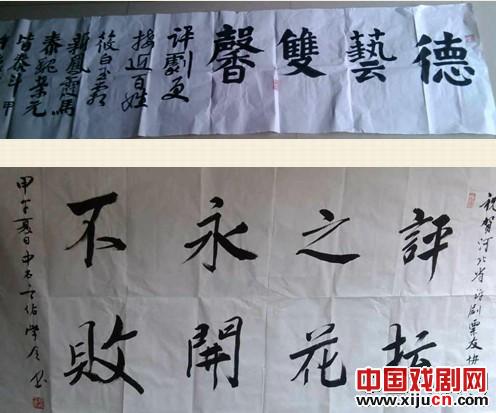 德
藝
雙
馨
評劇更
接近百姓
筱白玉霜
新鳳霞馬
泰魏榮元
皆泰斗 甲
祝賀河北省評劇票友協
評坛
之花
永開
不敗
甲午夏日
中国戏剧网
www.xijucn.com